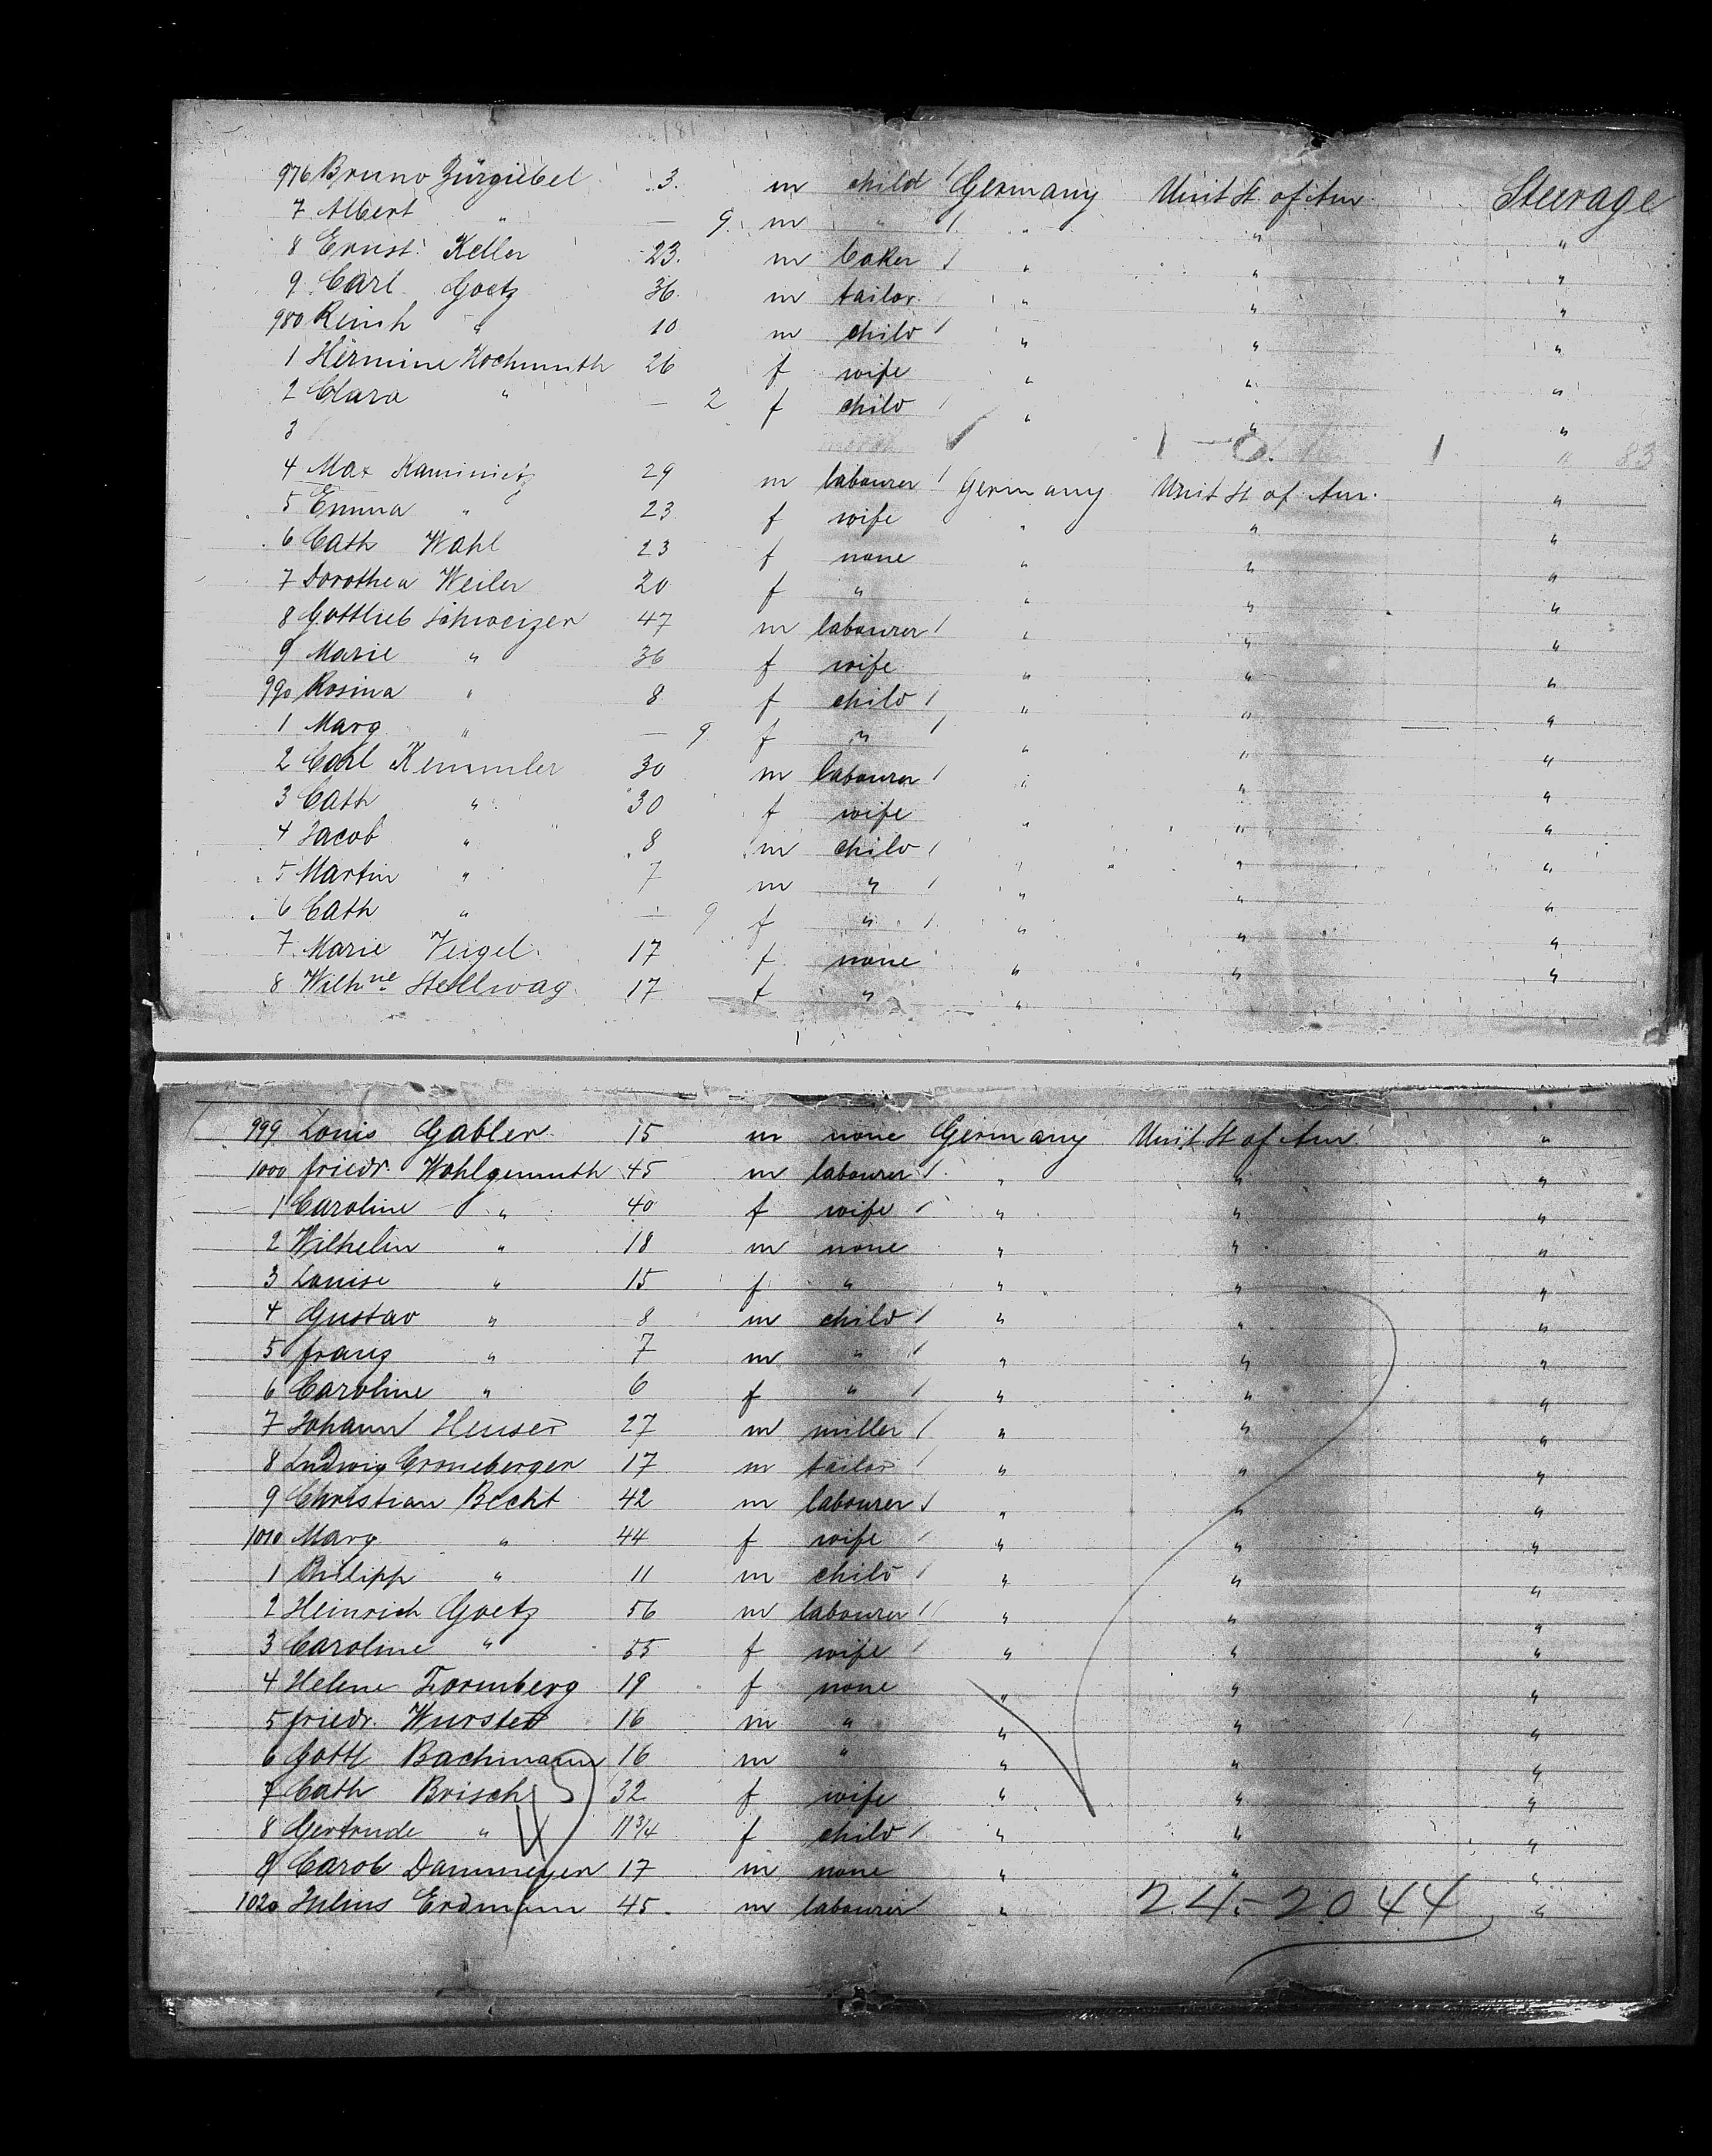 181
976 Bruno Zürgiebel 3. m child / Germany Unit St. of Am. Steerage
7 Albert " — 9 m " / " " "
8 Ernst Keller 23. m baker / " " "
9 Carl Goetz 36. m tailor " " "
980 Reinh " 10 m child / " " "
1 Hermine Hochmuth 26 f wife " " "
2 Clara " — 2 f child / " " "
3 1 " 83
4 Max Kaminietz 29 m labourer / Germany Unit St of Am. "
5 Emma " 23 f wife " " "
6 Cath Wahl 23 f none " " "
7 Dorothea Weiler 20 f " " " "
8 Gottlieb Schweizer 47 m labourer / " " "
9 Marie " 36 f wife " " "
990 Rosina " 8 f child / " " "
1 Marg " — 9 f " / " " "
2 Carl Kemmler 30 m labourer / " " "
3 Cath " 30 f wife " " "
4 Jacob " 8 m child / " " "
5 Martin " 7 m " / " " "
6 Cath " — 9 f " / " " "
7 Marie Veigel 17 f none " " "
8 Wilhne Stellwag 17 f " " " "
999 Louis Gabler 15 m none Germany Unit St of Am. "
1000 Friedr. Wohlgemuth 45 m labourer / " " "
1 Caroline " 40 f wife / " " "
2 Wilhelm " 18 m none " " "
3 Louise " 15 f " " " "
4 Gustav " 8 m child / " " "
5 Franz " 7 m " / " " "
6 Caroline " 6 f " / " " "
7 Johann Heuser 27 m miller / " " "
8 Ludwig 17 m tailor / " " "
9 Christian Becht 42 m labourer / " " "
1010 Marg " 44 f wife / " " "
1 Philipp " 11 m child / " " "
2 Heinrich Goetz 56 m labourer / " " "
3 Caroline " 55 f wife / " " "
4 Helene 19 f none " " "
5 Friedr. Wurster 16 m " " " "
6 Gottl Bachmann 16 m " " " "
7 Cath Brisch 32 f wife " " "
8 Gertrude " 11 3/4 f child / " " "
9 Carob Dammeyer 17 m none " " "
1020 Julius Erdmann 45. m labourer / " 24-2044 "
45